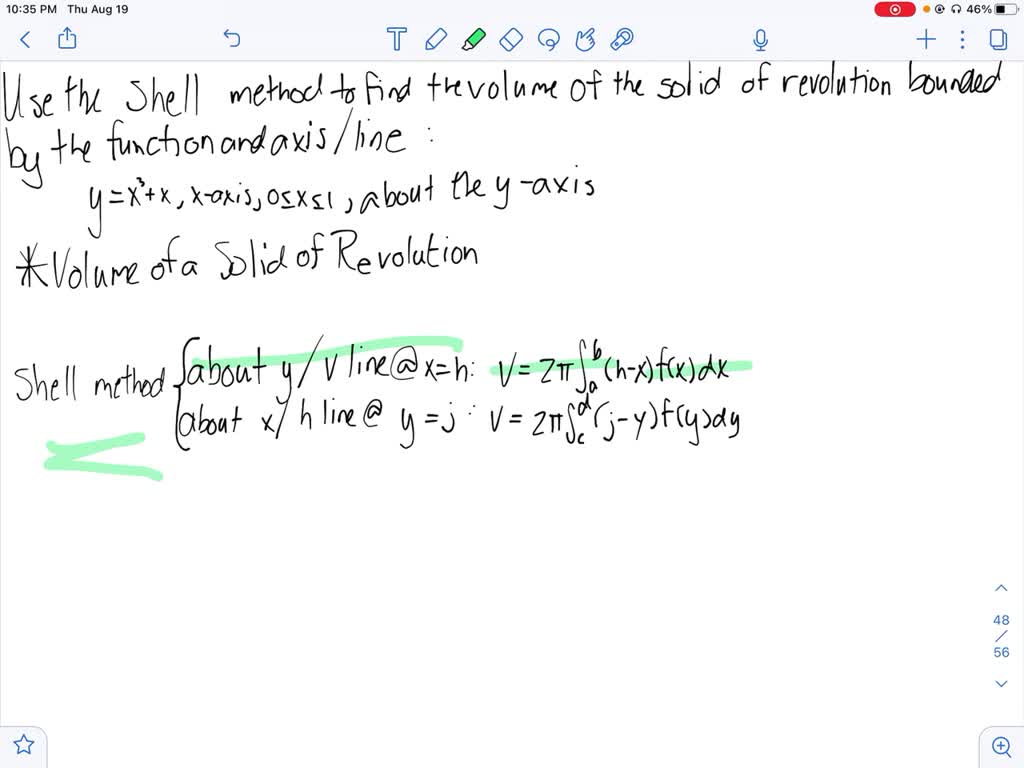 10:35 PM Thu Aug 19
46%
Use the Shell method to find the volume of the solid of revolution bounded
by the function and axis/line :
y=x³+x, x-axis, 0≤x≤1, about the y-axis
*Volume of a Solid of Revolution
Shell method
about y/ v line @ x=h: V = 2π∫ₐᵇ(h-x)f(x)dx
about x/ h line @ y=j: V = 2π∫꜀ᵈ(j-y)f(y)dy
48
/
56